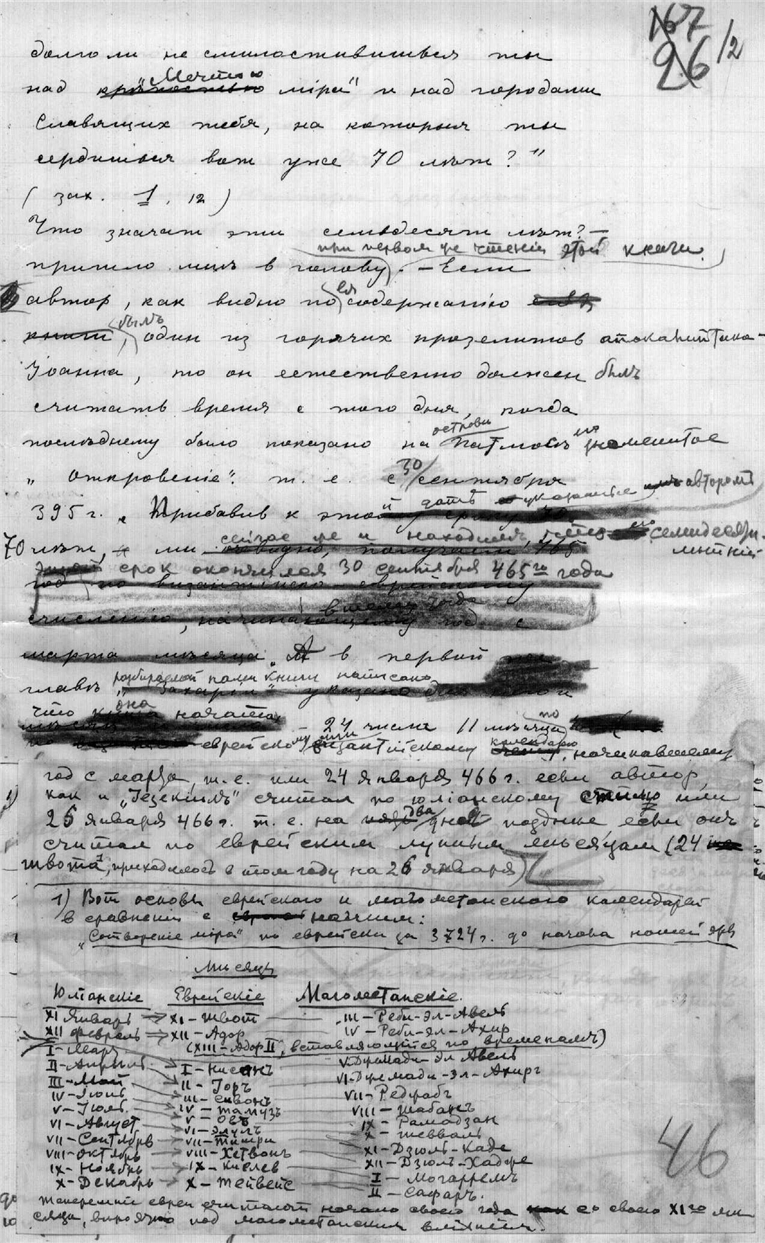 167
26/2
долго ли не смилостивишься ты
над "Мечтою мира" и над городами
славящих тебя, на которыя ты
сердишься вот уже 70 лѣт?"
(Зах. 1, 12)
Что значат эти семьдесят лѣт? —
при первом же чтении этой книги
пришло мнѣ в голову. — Если
автор, как видно по ея содержанию
был один из горячих прозелитов апокалиптика —
Іоанна, то он естественно должен был
считать время с того дня, когда
послѣднему было показано на островѣ Патмосѣ его знаменитое
"откровение" т. е. с 30 сентября
395 г. Прибавив к этой датѣ указанные автором
70 лѣт, мы сейчас же и находим, что семидесяти-
лѣтний
срок окончился 30 сентября 465го года
А в первой
главѣ разбираемой нами книги написано
что она начата
24 числа 11 мѣсяца по
еврейскому или византийскому календарю, начинавшему
год с марта, т. е. или 24 Января 466 г. если автор,
как и "Іезекииль" считал по юлианскому стилю или
26 января 466 г. т. е. на два дня позднѣе если он
считал по еврейским лунным мѣсяцам (24
швота, приходилось в том году на 26 января)
1) Вот основы еврейского и магометанского календарей
в сравнении с нашим:
"Сотворение мира" по еврейски за 3724 г. до начала нашей эры
Мѣсяцы
Юлианские Еврейские Магометанские.
XI Январь XI - Швот III - Реби-эл-Авель
XII Февраль XII - Адор IV - Реби-эл-Ахир
I - Март (XIII - Адор II, вставляются по временам)
II - Апрель I - Нисан V Джемади-эл Авель
III - Май II - Іор VI - Джемади-эл-Ахир
IV - Іюнь III - Сивон VII - Реджаб
V - Іюль IV - Тамуз VIII - Шабан
VI - Август V - Ов IX - Рамадзан
VII - Сентябрь VI - Элул X - Шевваль
VIII - Октябрь VII - Тишри XI - Дзюль-Каде
IX - Ноябрь VIII - Хетвон XII - Дзюль-Хадже
X - Декабрь IX - Кислев I - Могаррем
X - Тейвейс II - Сафар.
46
Теперешние евреи считают начало своего года со своего XIго мѣ-
сяца, вѣроятно под магометанским влиянием.